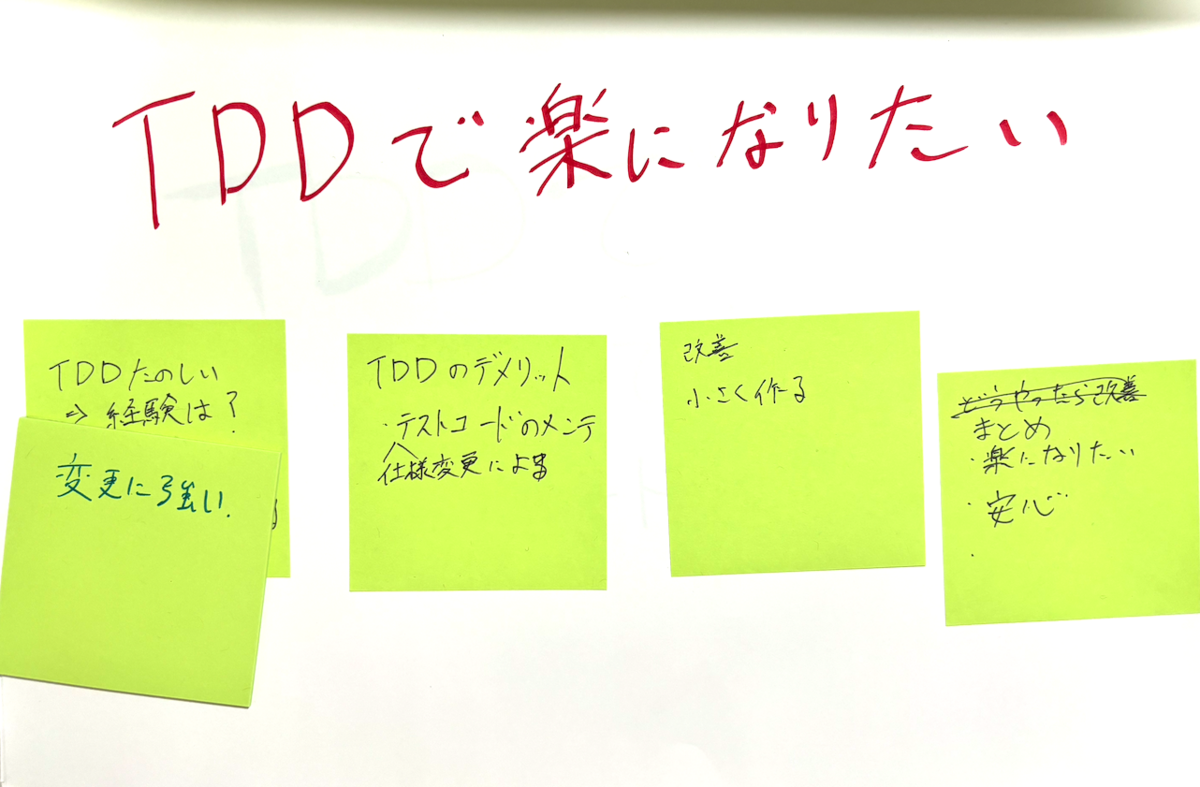 TDDで楽になりたい
TDDたのしい
⇒ 経験は？
変更に強い.
TDDのデメリット
・テストコードのメンテ
仕様変更による
改善
小さく作る
どうやったら改善
まとめ
・楽になりたい
・安心
・